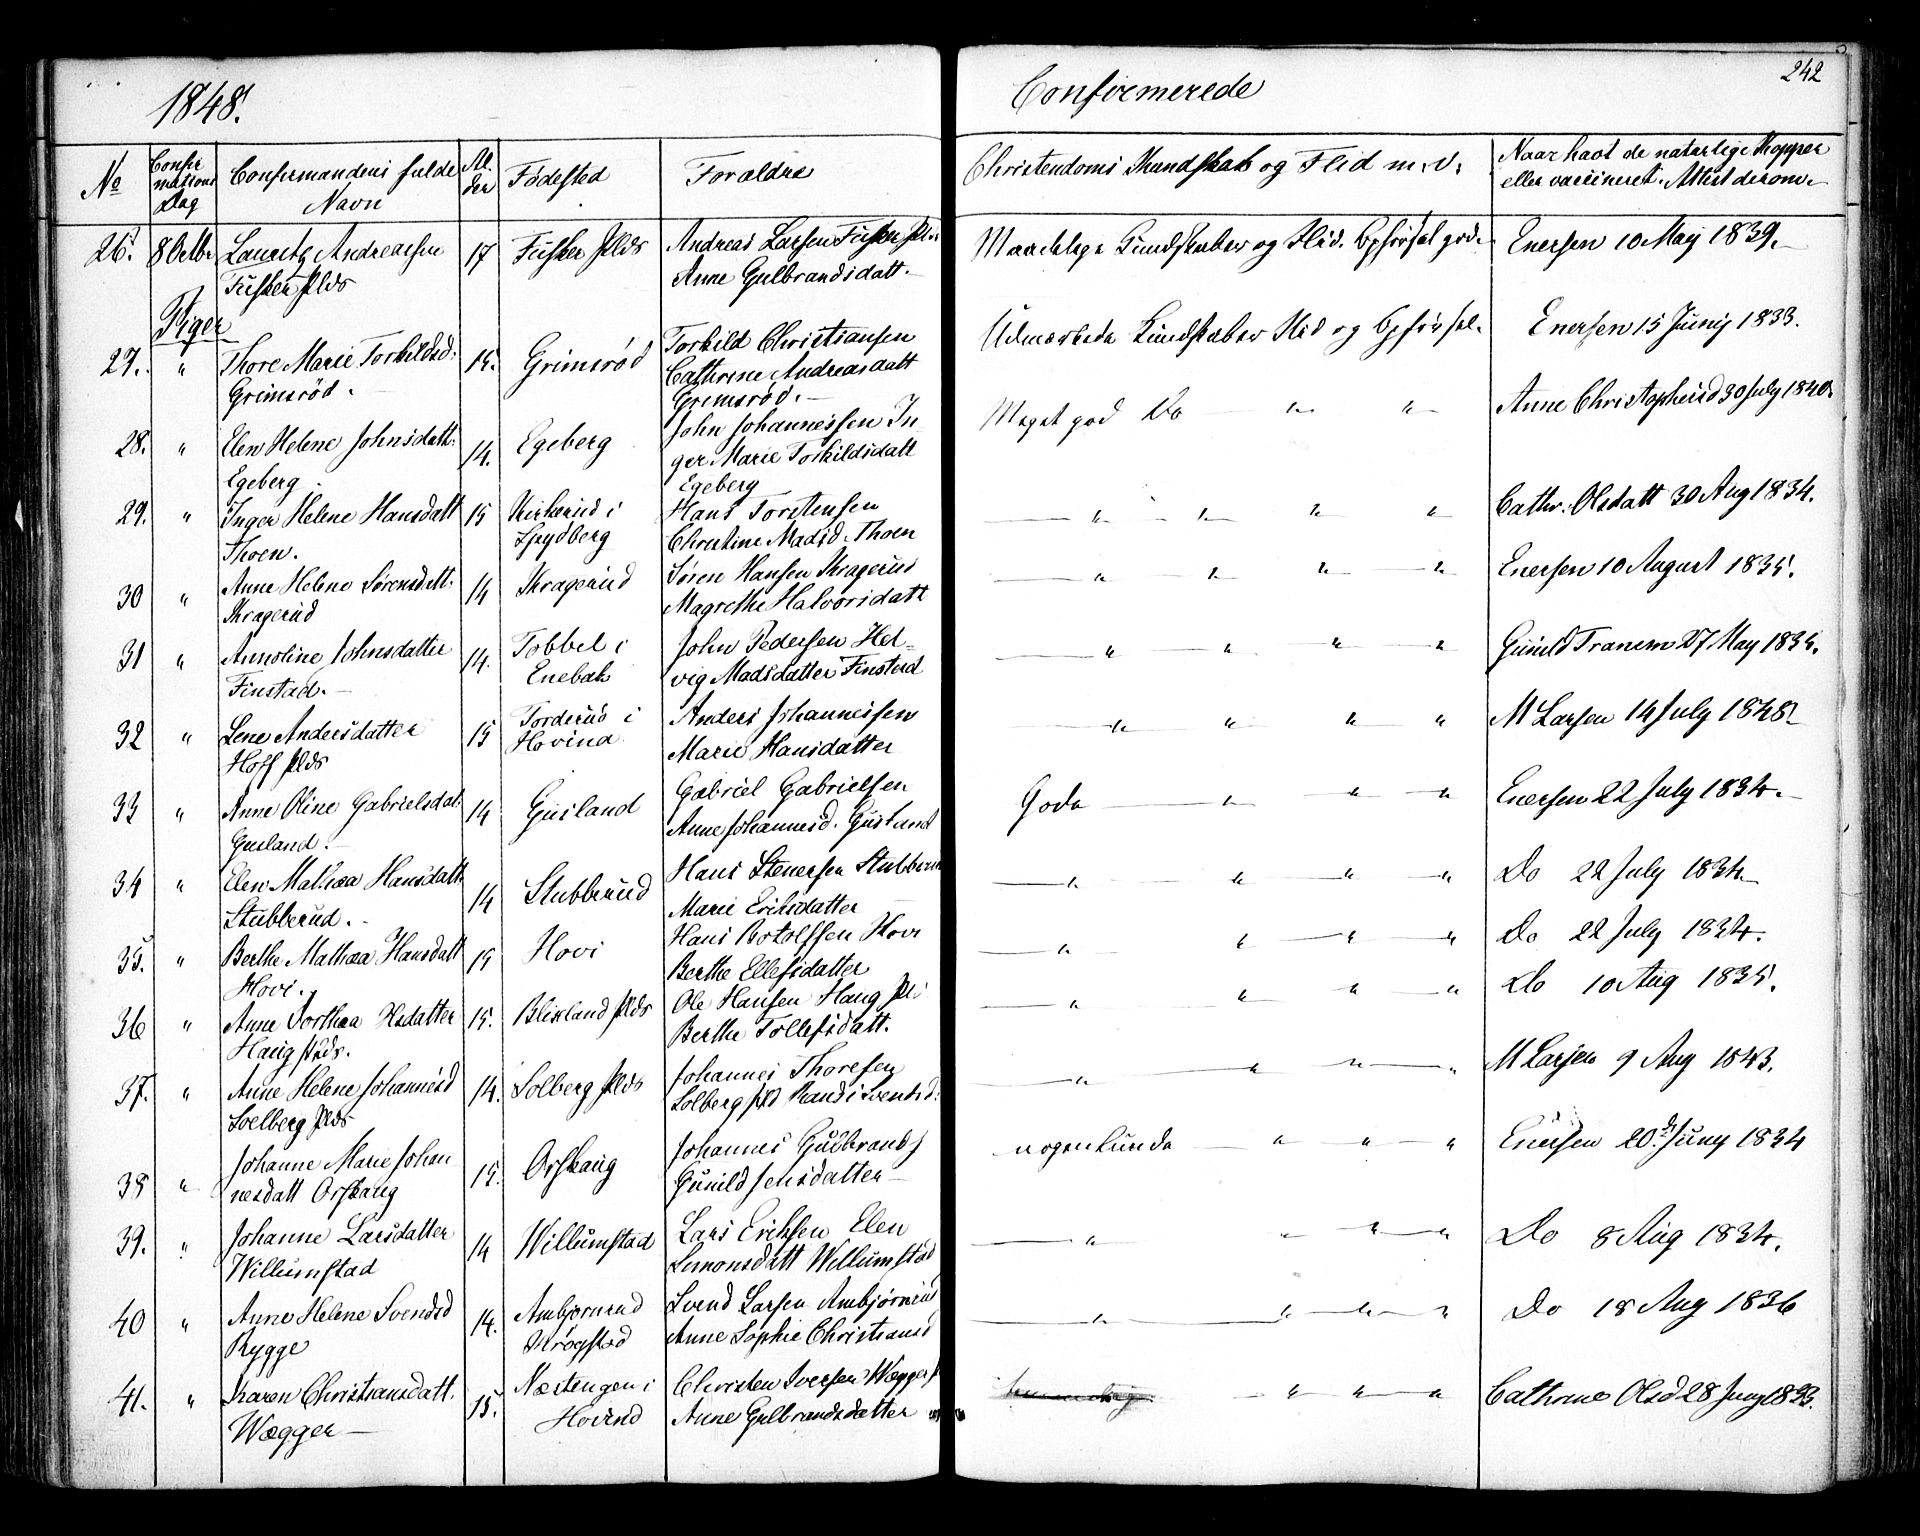 1848.
Confirmerede
242
No
Confir
mations
Dag
Confirmandens fulde
Navn
Al-
der
Fødested
Forældre
Christendoms Kundskab og Flid m. v.
Naar havt de naturlige Kopper
eller vaccineret. Attest derom.
26. 8 Octbr Lauritz Andreassen 17 Fusker Plds Andreas Larsen Fusker Plds Maadelige Kundskaber og Flid. Opførsel god. Enersen 10 May 1839.
Fusker Plds Anne Gulbrandsdatt.
Piger
27. " Thore Marie Torkildsd: 15. Grimsrød Torkild Christiansen Udmærkede Kundskaber Flid og Opførsel. Enersen 15 Junij 1833.
Grimsrød. Cathrine Andreasdatt
Grimsrød.
28. " Elen Helene Johnsdatt. 14. Egeberg John Johannessen In- Meget god Do " " Anne Christophersd 30 July 1840.
Egeberg ger Marie Torkildsdatt
Egeberg
29. " Inger Helene Hansdatt 15 Kirkerud i Hans Torstensen " " " " Cathr. Olsdatt 30 Aug 1834.
Thoen. Spydberg Christine Madsd. Thoen
30 " Anne Helene Sørensdatt. 14 Kragerud Søren Hansen Kragerud " " " " Enersen 10 August 1835.
Kragerud Magrethe Halvorsdatt
31 " Annoline Johnsdatter 14. Tobbel i John Pedersen Hel- " " " " Gunild Tranem 27 May 1835.
Finstad. Enebak vig Madsdatter Finstad
32 " Lene Andersdatter 15 Torderud i Anders Johannessen " " " " M Larsen 14 July 1848
Hoff Plds Hovind Marie Hansdatter
33 " Anne Oline Gabrielsdat. 14 Gusland Gabriel Gabrielsen Gode " " " Enersen 22 July 1834.
Gusland. Anne Johannesd. Gusland
34 " Elen Mathea Hansdatt 14 Stubberud Hans Stenersen Stubberud " " " " Do 22 July 1834
Stubberud. Marie Eriksdatter
35. " Berthe Mathea Hansdatt 15 Hovi Hans Botolfsen Hovi " " " " Do 22 July 1834.
Hovi. Berthe Ellefsdatter
36 " Anne Dorthea Olsdatter 15. Blixland Plds Ole Hansen Haug Pls " " " " Do 10 Aug 1835.
Haug Plds. Berthe Tollefsdatt.
37. " Anne Helene Johannesd 14. Solberg Plds Johannes Thoresen " " " " M Larsen 9 Aug 1843.
Soelberg Plds Solberg Pld Randi Svendsd:
38 " Johanne Marie Johan 15. Orskaug Johannes Gulbrands nogenlunde " " " Enersen 20de Juny 1834
nesdatt Orskaug Gunild Jensdatter
39. " Johanne Larsdatter 14 Willumstad Lars Eriksen Elen " " " " Do 8 Aug 1834.
Willumstad Simonsdatt Willumstad
40 " Anne Helene Svendsd 14. Ambjørnrud Svend Larsen Ambjørnrud " " " " Do 18 Aug 1836
Rygge Krogstad Anne Sophie Christiansd
41. " Karen Christiansdatt. 15. Næstengen i Christen Iversen Wægger " " " Cathrine Olsd 28 Juny 1833.
Wægger Hovind Anne Gulbrandsdatter